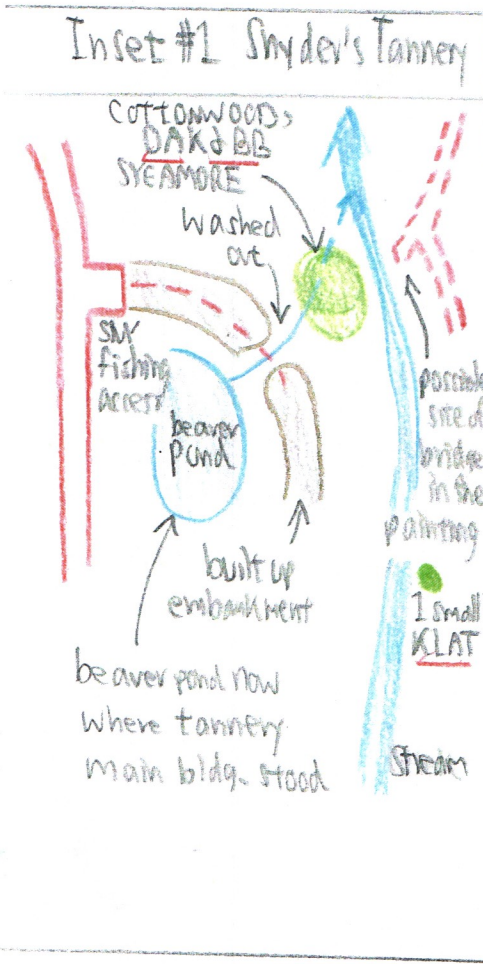 Inset #1 Snyder's Tannery
COTTONWOODS,
OAK & BB
SYCAMORE
washed
out
fishing
access
beaver
pond
possible
site of
bridge
in the
painting
built up
embankment
1 small
KLAT
beaver pond now
where tannery
main bldg. stood
stream